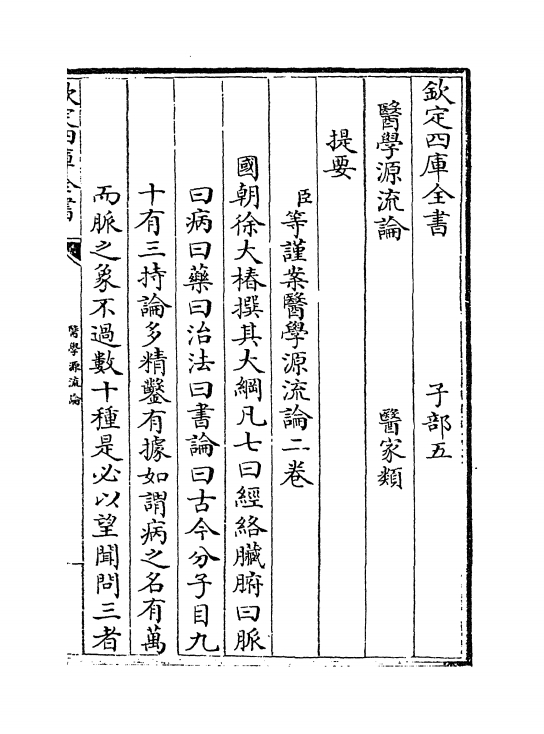 欽定四庫全書　　　　　子部五
醫學源流論　　　　　　醫家類
提要
臣等謹案醫學源流論二卷
國朝徐大椿撰其大綱凡七曰經絡臟腑曰脈
曰病曰藥曰治法曰書論曰古今分子目九
十有三持論多精鑿有據如謂病之名有萬
而脈之象不過數十種是必以望聞問三者
欽定四庫全書
醫學源流論